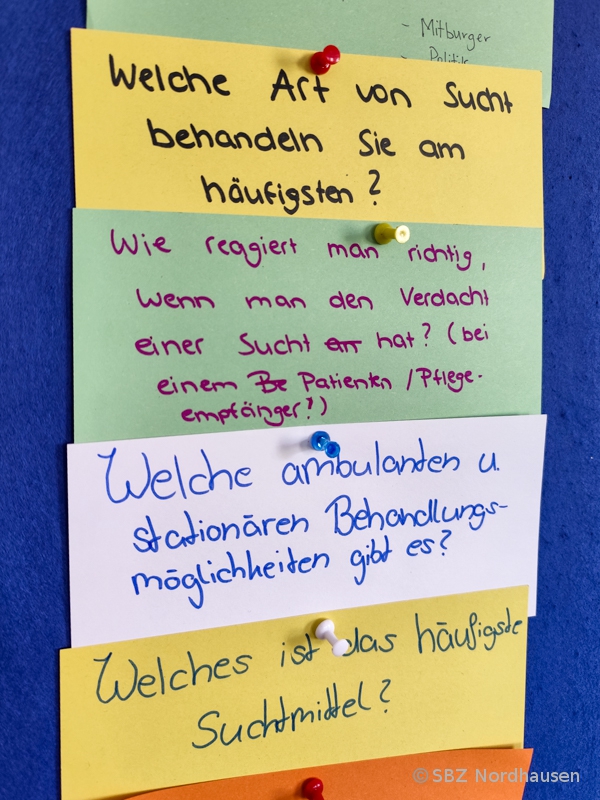 - Mitbürger
- Politik
Welche Art von Sucht
behandeln Sie am
häufigsten?
Wie reagiert man richtig,
wenn man den Verdacht
einer Sucht an hat? (bei
einem Be Patienten / Pflege-
empfänger?)
Welche ambulanten u.
stationären Behandlungs-
möglichkeiten gibt es?
Welches ist das häufigste
Suchtmittel?
© SBZ Nordhausen